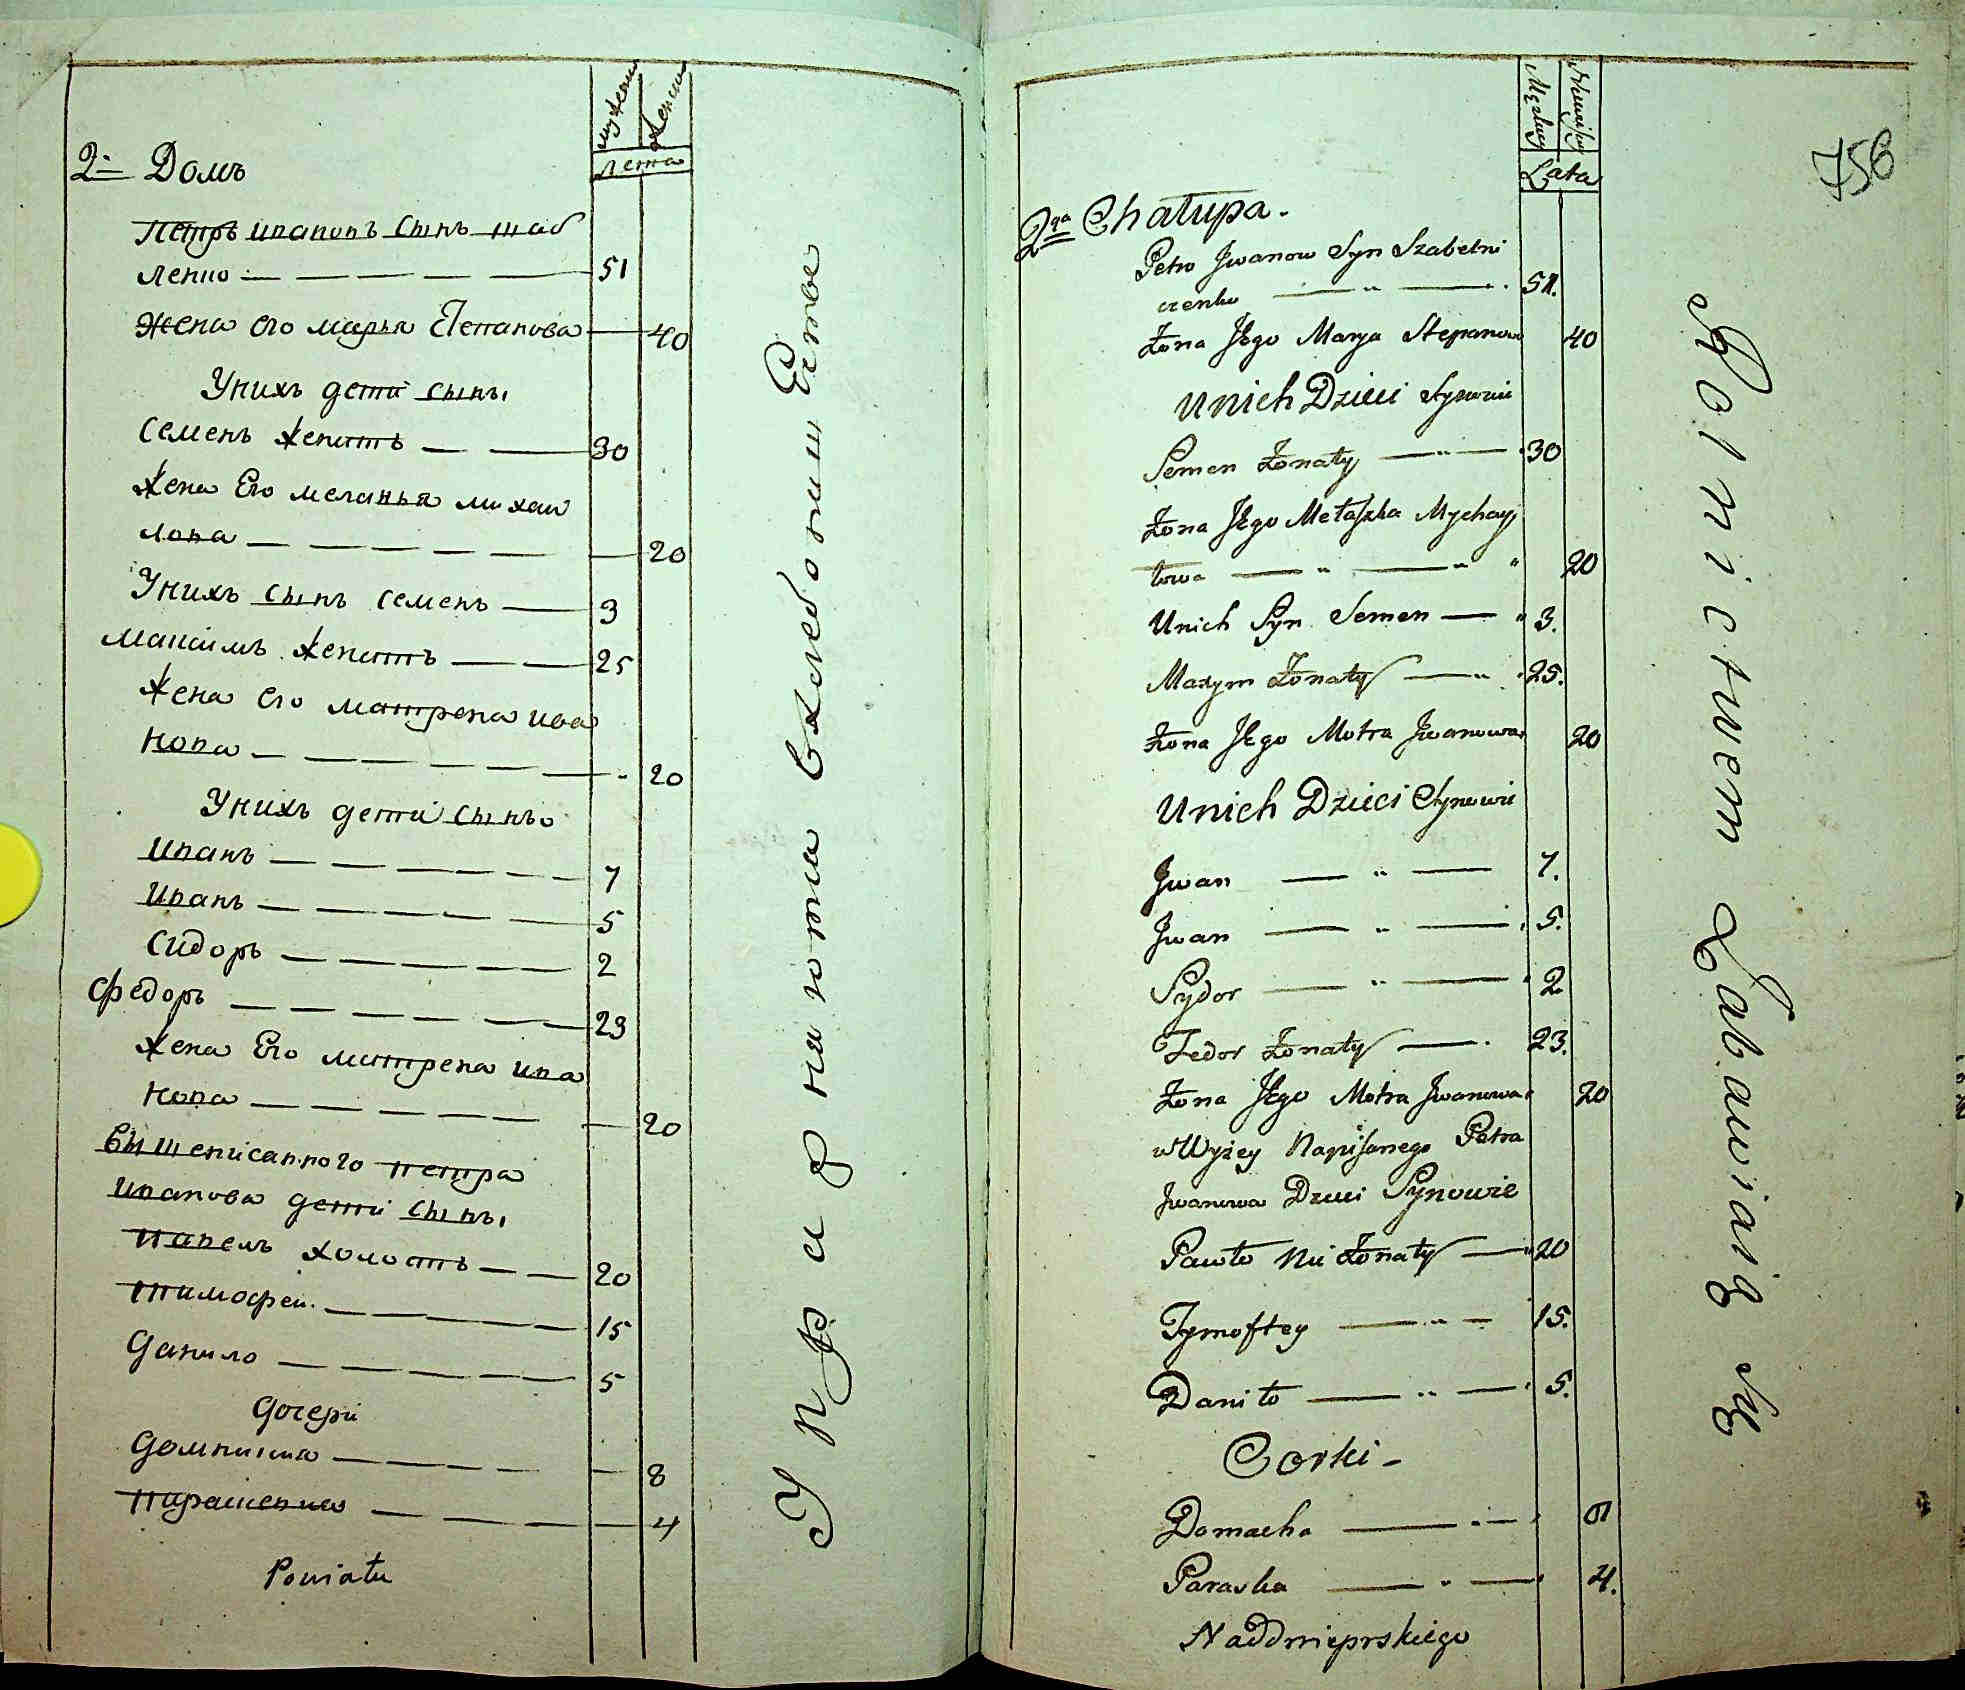 мужеска
женска
лета
2й Домъ
Петръ Ивановъ сынъ Шаб
ленко — — — — — 51
Жена его Марья Степанова — 40
У нихъ дети сыны
Семенъ женатъ — — 30
Жена Его Меланья Михай
лова — — — — — — 20
У нихъ сынъ Семенъ — 3
Максимъ женатъ — — 25
Жена его Матрена Ива
нова — — — — — — 20
У нихъ дети сыны
Иванъ — — — — — — 7
Иванъ — — — — — — 5
Сидоръ — — — — — 2
Федоръ — — — — — — 23
Жена Его Матрена Ива
нова — — — — — — 20
Вышеписанного Петра
Иванова дети сыны
Павелъ холостъ — — 20
Тимофей — — — — — 15
Данило — — — — — 5
Дочери
Домникия — — — — — 8
Парасковия — — — — — 4
Powiatu
Упражняются в хлебопашестве
Męzkiey
Żeńskiey
Lata
758
2ga Chałupa.
Petro Jwanow Syn Szabelni
czenko — „ — 51.
Żona Jego Marya Stepanowa 40
Unich Dzieci Synowie
Semen Żonaty — „ — 30
Żona Jego Metaszka Mychay
łowa — „ — „ „ 20
Unich Syn Semen — „ 3.
Maxym Żonaty — „ 25.
Żona Jego Motra Jwanowa 20
Unich Dzieci Synowie
Jwan — „ — 7.
Jwan — „ — 5.
Sydor — „ — 2
Fedor Żonaty — 23.
Żona Jego Motra Jwanowa 20
w Wyżey Napisanego Petra
Jwanowa Dzieci Synowie
Pawło Nie Żonaty — 20
Tymoftey — „ — 15.
Daniło — „ — 5.
Corki —
Domacha —
Paraska — „ — 4.
Naddnieprskiego
Rolnictwem Zabawiaią się